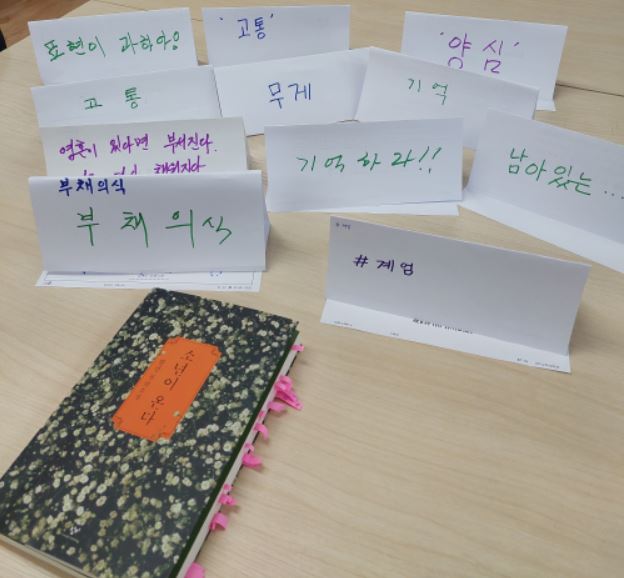 표현이 과하아앙
'고통'
'양심'
고통
무게
기억
영혼이 있다면 부서진다.
채워진다
기억하라!!
남아있는...
부채의식
부채의식
#계엄
소년이 온다